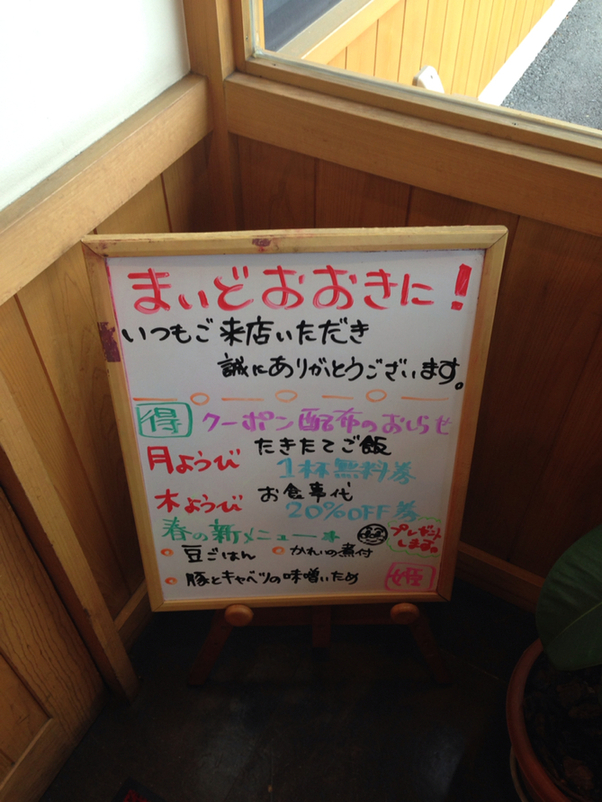 まいどおおきに！
いつもご来店いただき
誠にありがとうございます。
得 クーポン配布のおしらせ
月ようび たきたてご飯
1杯無料券
木ようび お食事代
20%OFF券
プレゼント
します。
春の新メニュー
豆ごはん かれいの煮付
豚とキャベツの味噌いため